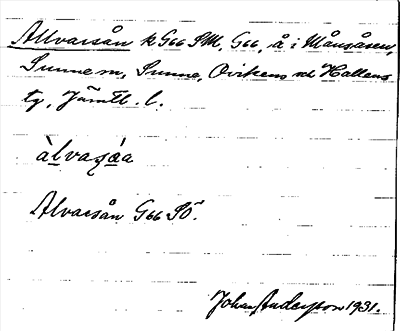 Allvarsån k G66 SM, G66, å i Månsåsen,
Sunne m, Sunne, Ovikens och Hallens
tg, Jämtl. l.
àlvaṣǻa
Alvarsån G66 SÖ.
Johan Andersson 1931.